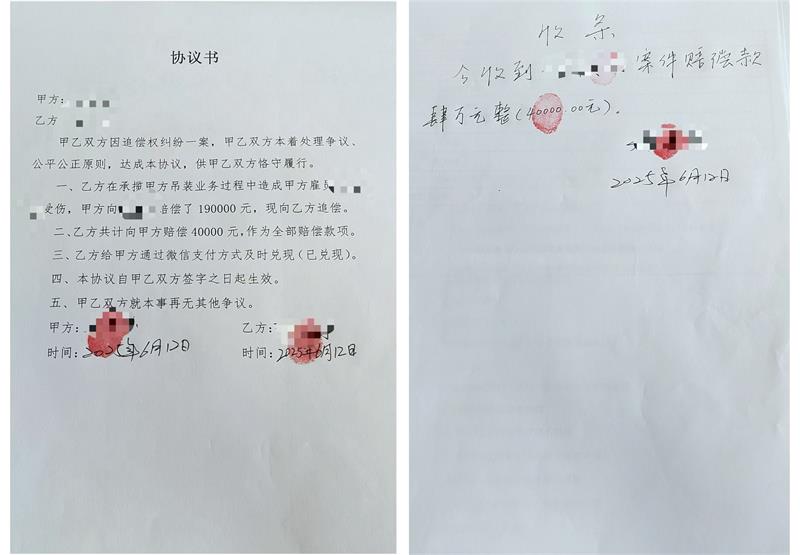 协议书
甲方：
乙方
甲乙双方因追偿权纠纷一案，甲乙双方本着处理争议、
公平公正原则，达成本协议，供甲乙双方恪守履行。
一、乙方在承揽甲方吊装业务过程中造成甲方雇员
受伤，甲方向 赔偿了 190000 元，现向乙方追偿。
二、乙方共计向甲方赔偿 40000 元，作为全部赔偿款项。
三、乙方给甲方通过微信支付方式及时兑现（已兑现）。
四、本协议自甲乙双方签字之日起生效。
五、甲乙双方就本事再无其他争议。
甲方： 乙方：
时间：2025年6月12日 时间：2025年6月12日
收条
今收到 案件赔偿款
肆万元整（40000.00元）。
2025年6月12日